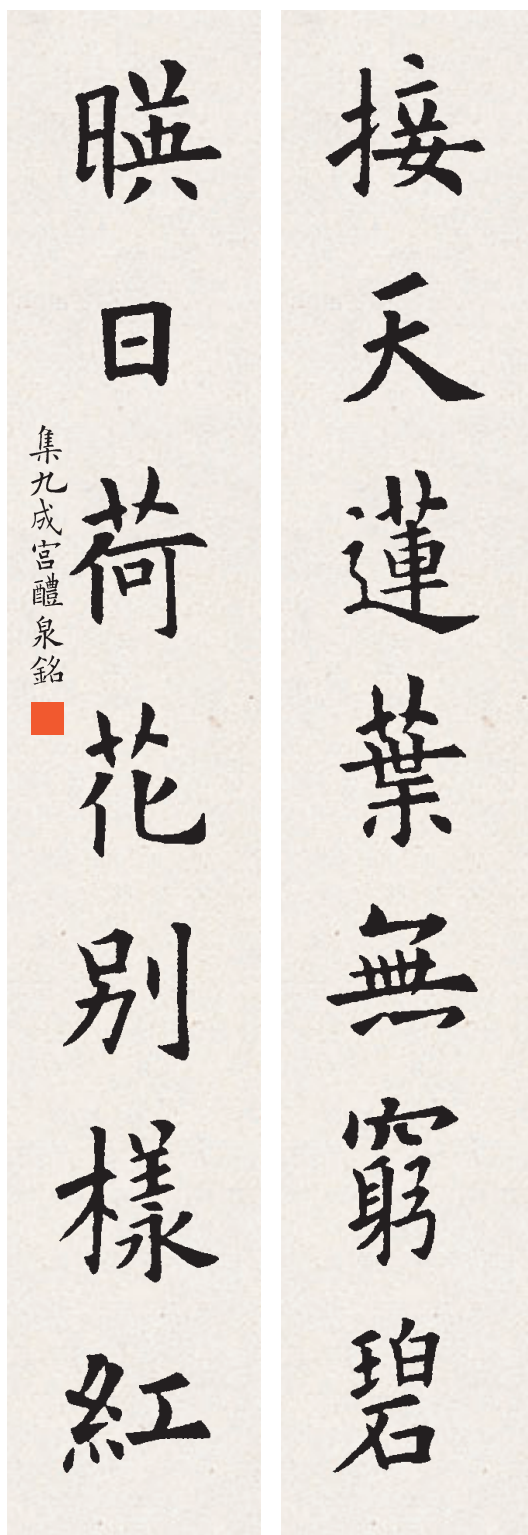 接天蓮葉無窮碧
暎日荷花別樣紅
集九成宮醴泉銘